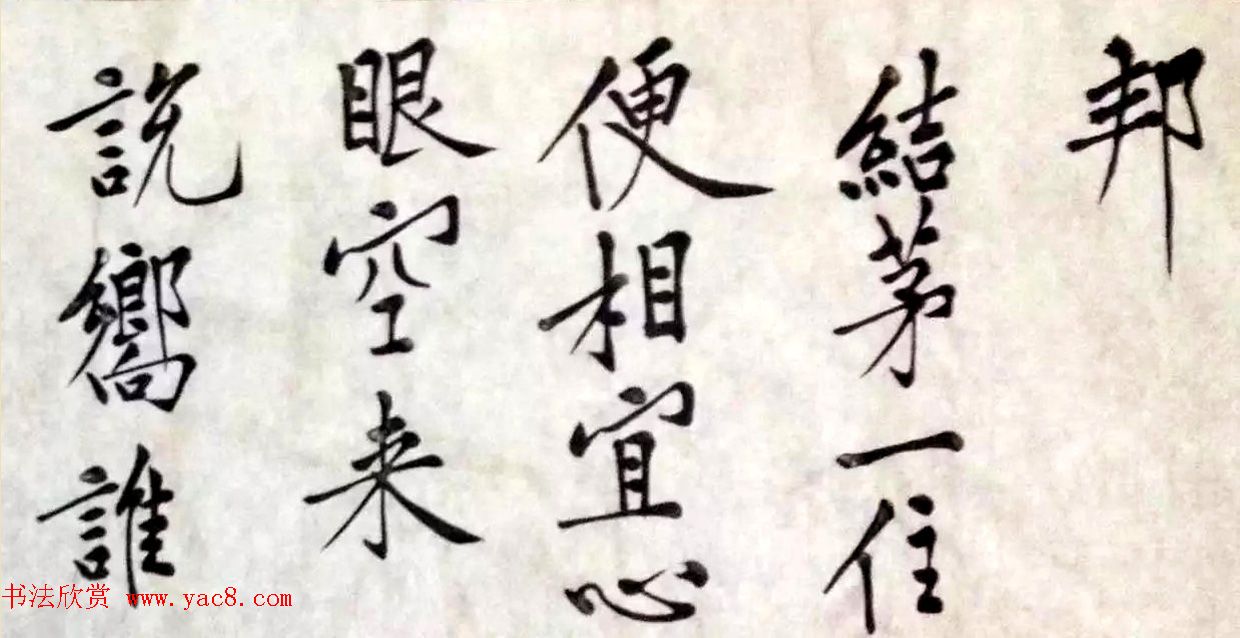 邦
結茅一住
便相宜心
眼空来
説嚮誰
书法欣赏 www.yac8.com